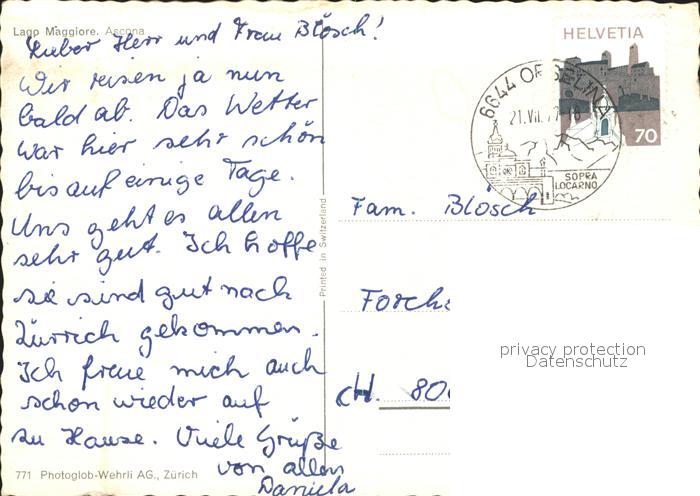 Lago Maggiore. Ascona
Lieber Herr und Frau Blösch!
Wir reisen ja nun
bald ab. Das Wetter
war hier sehr schön
bis auf einige Tage.
Uns geht es allen
sehr gut. Ich hoffe
sie sind gut nach
Zürrich gekommen.
Ich freue mich auch
schon wieder auf
zu Hause. Viele Grüße
von allen
Daniela
771 Photoglob-Wehrli AG., Zürich
Printed in Switzerland
HELVETIA
70
6644 ORSELINA
21.VII.77-18
SOPRA
LOCARNO
Fam. Blösch
Forchs
CH. 800
privacy protection
Datenschutz